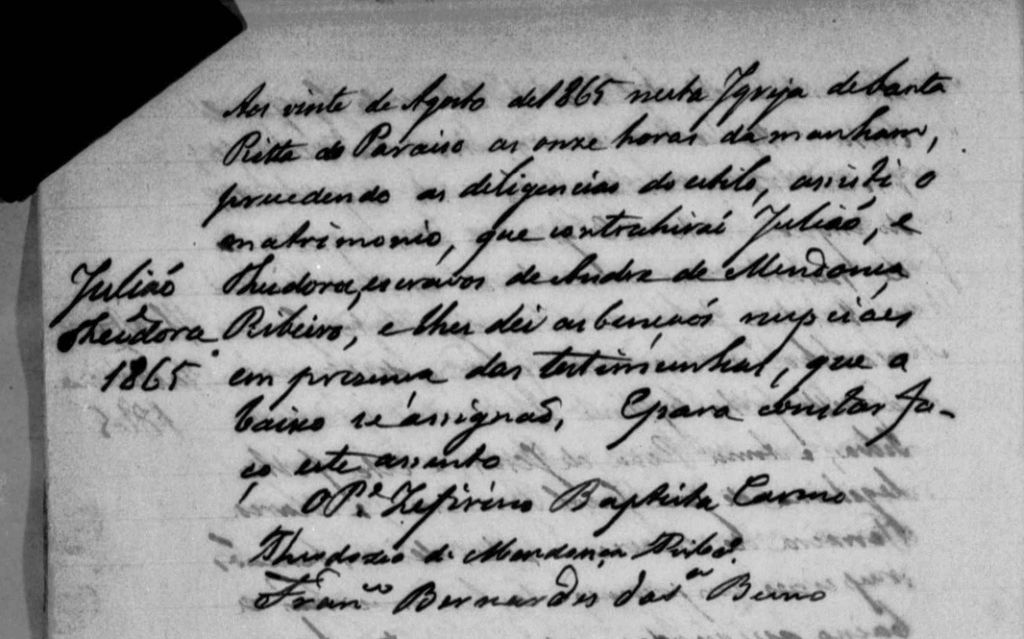 Aos vinte de Agosto de 1865 nesta Igreja de Santa
Ritta do Paraiso as onze horas da manham,
precedendo as diligencias do estilo, assisti o
matrimonio, que contrahiraõ Juliaõ, e
Theodora, escravos de Andre de Mendonça
Ribeiro, e lhes dei as bençaõs nupciaes
em presença das testimunhas, que a
baixo se assignaõ, E para constar fa-
ço este assento
O Pe. Zefirino Baptista Carmo
Theodozio de Mendonça Ribo.
Franco Bernardes das
Juliaõ
Theodora
1865